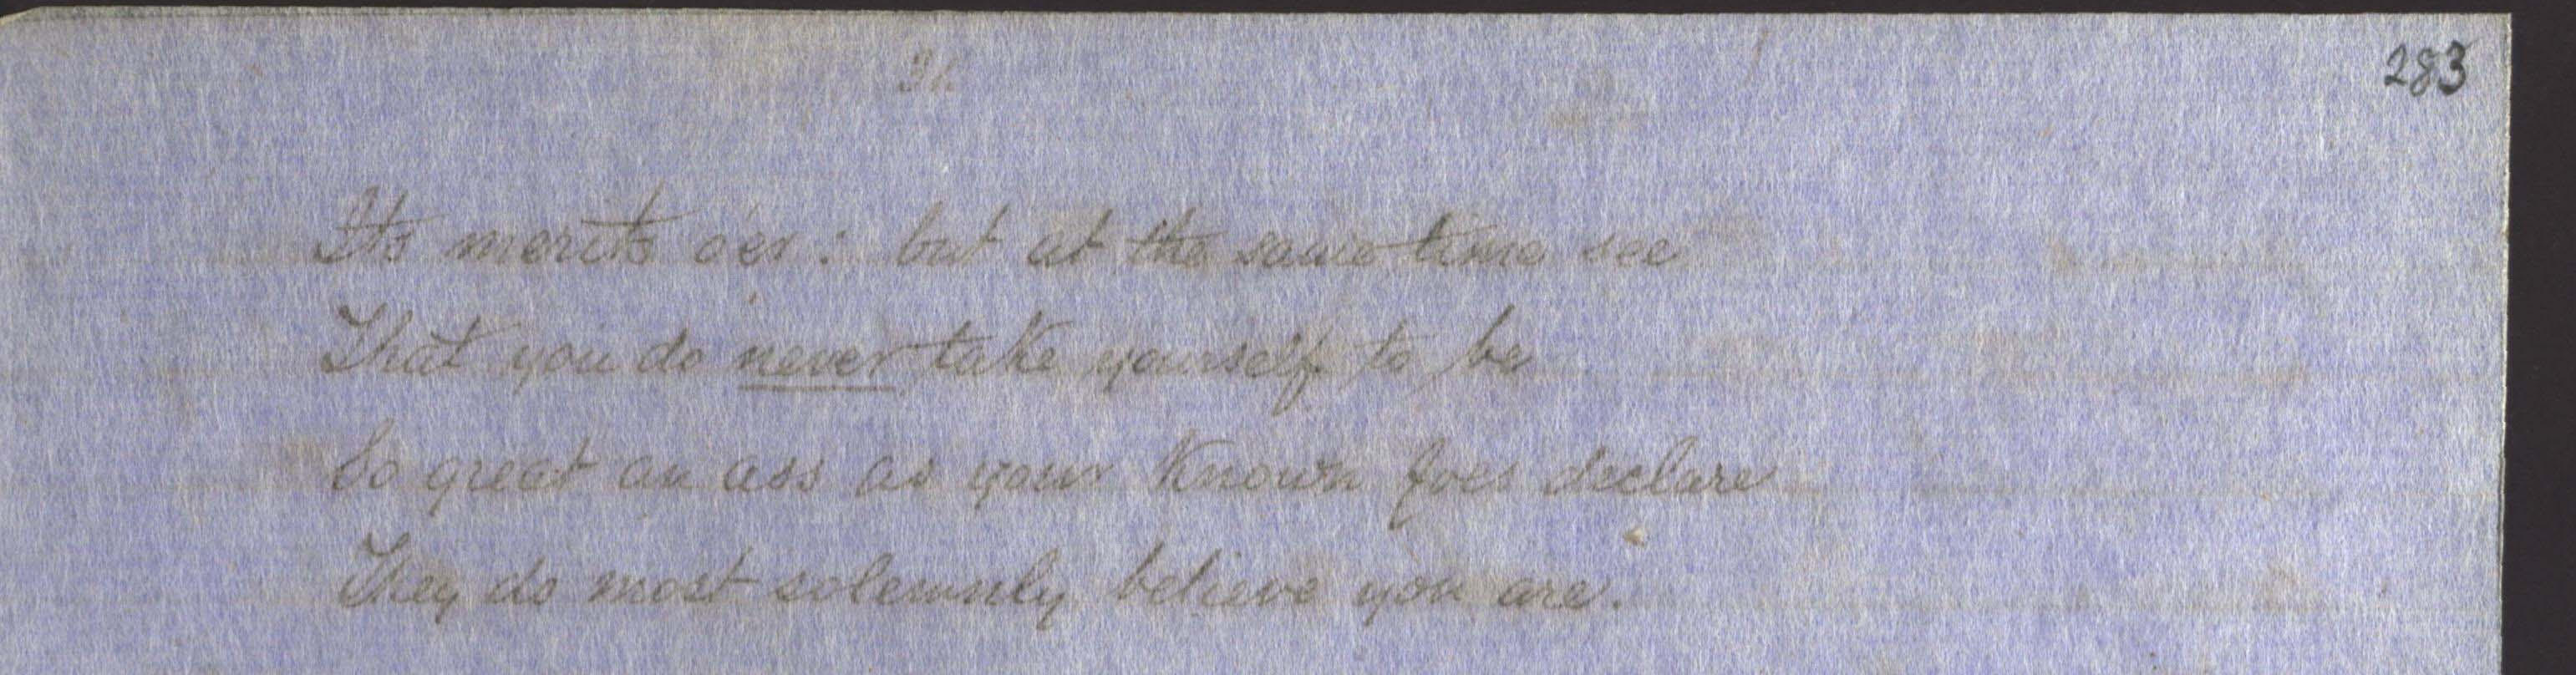 283
Its merits o'er: but at the same time see
That you do never take yourself to be
So great an ass as your Known foes declare
They do most solemnly believe you are.